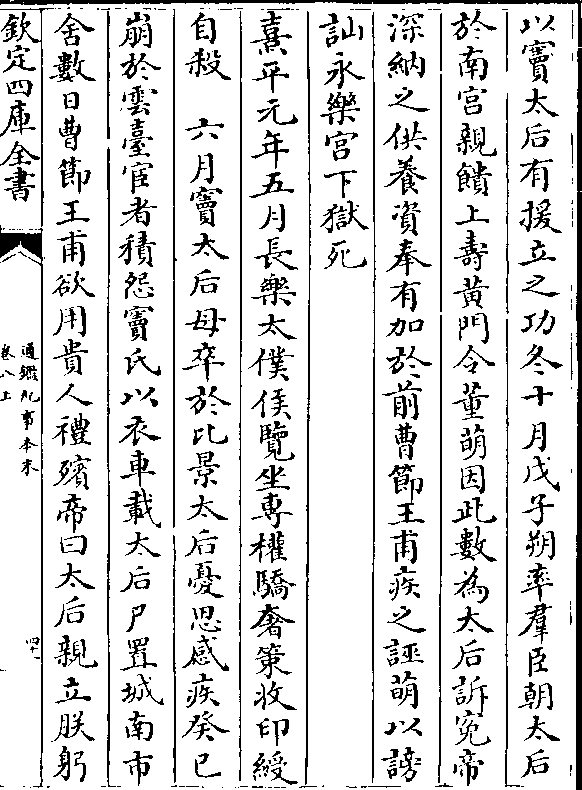 以竇太后有援立之功冬十月戊子朔率羣臣朝太后
於南宫親饋上壽黄門令董萌因此數為太后訴寃帝
深納之供養資奉有加於前曹節王甫疾之誣萌以謗
訕永樂宫下獄死
熹平元年五月長樂太僕侯覽坐専權驕奢策收印綬
自殺　六月竇太后母卒於比景太后憂思感疾癸巳
崩於雲臺宦者積怨竇氏以衣車載太后尸置城南市
舍數日曹節王甫欲用貴人禮殯帝曰太后親立朕躬
欽定四庫全書
通鑑紀事本末
卷八上